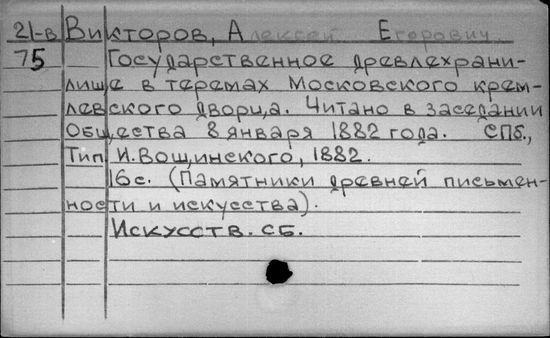 21-в Викторов, Алексей Егорович.
75 Государственное древлехрани-
лище в теремах Московского крем-
левского дворца. Читано в заседании
Общества 8 января 1882 года. СПб.,
Тип. И. Вощинского, 1882.
16с. (Памятники древней письмен-
ности и искусства).
Искусств. сб.